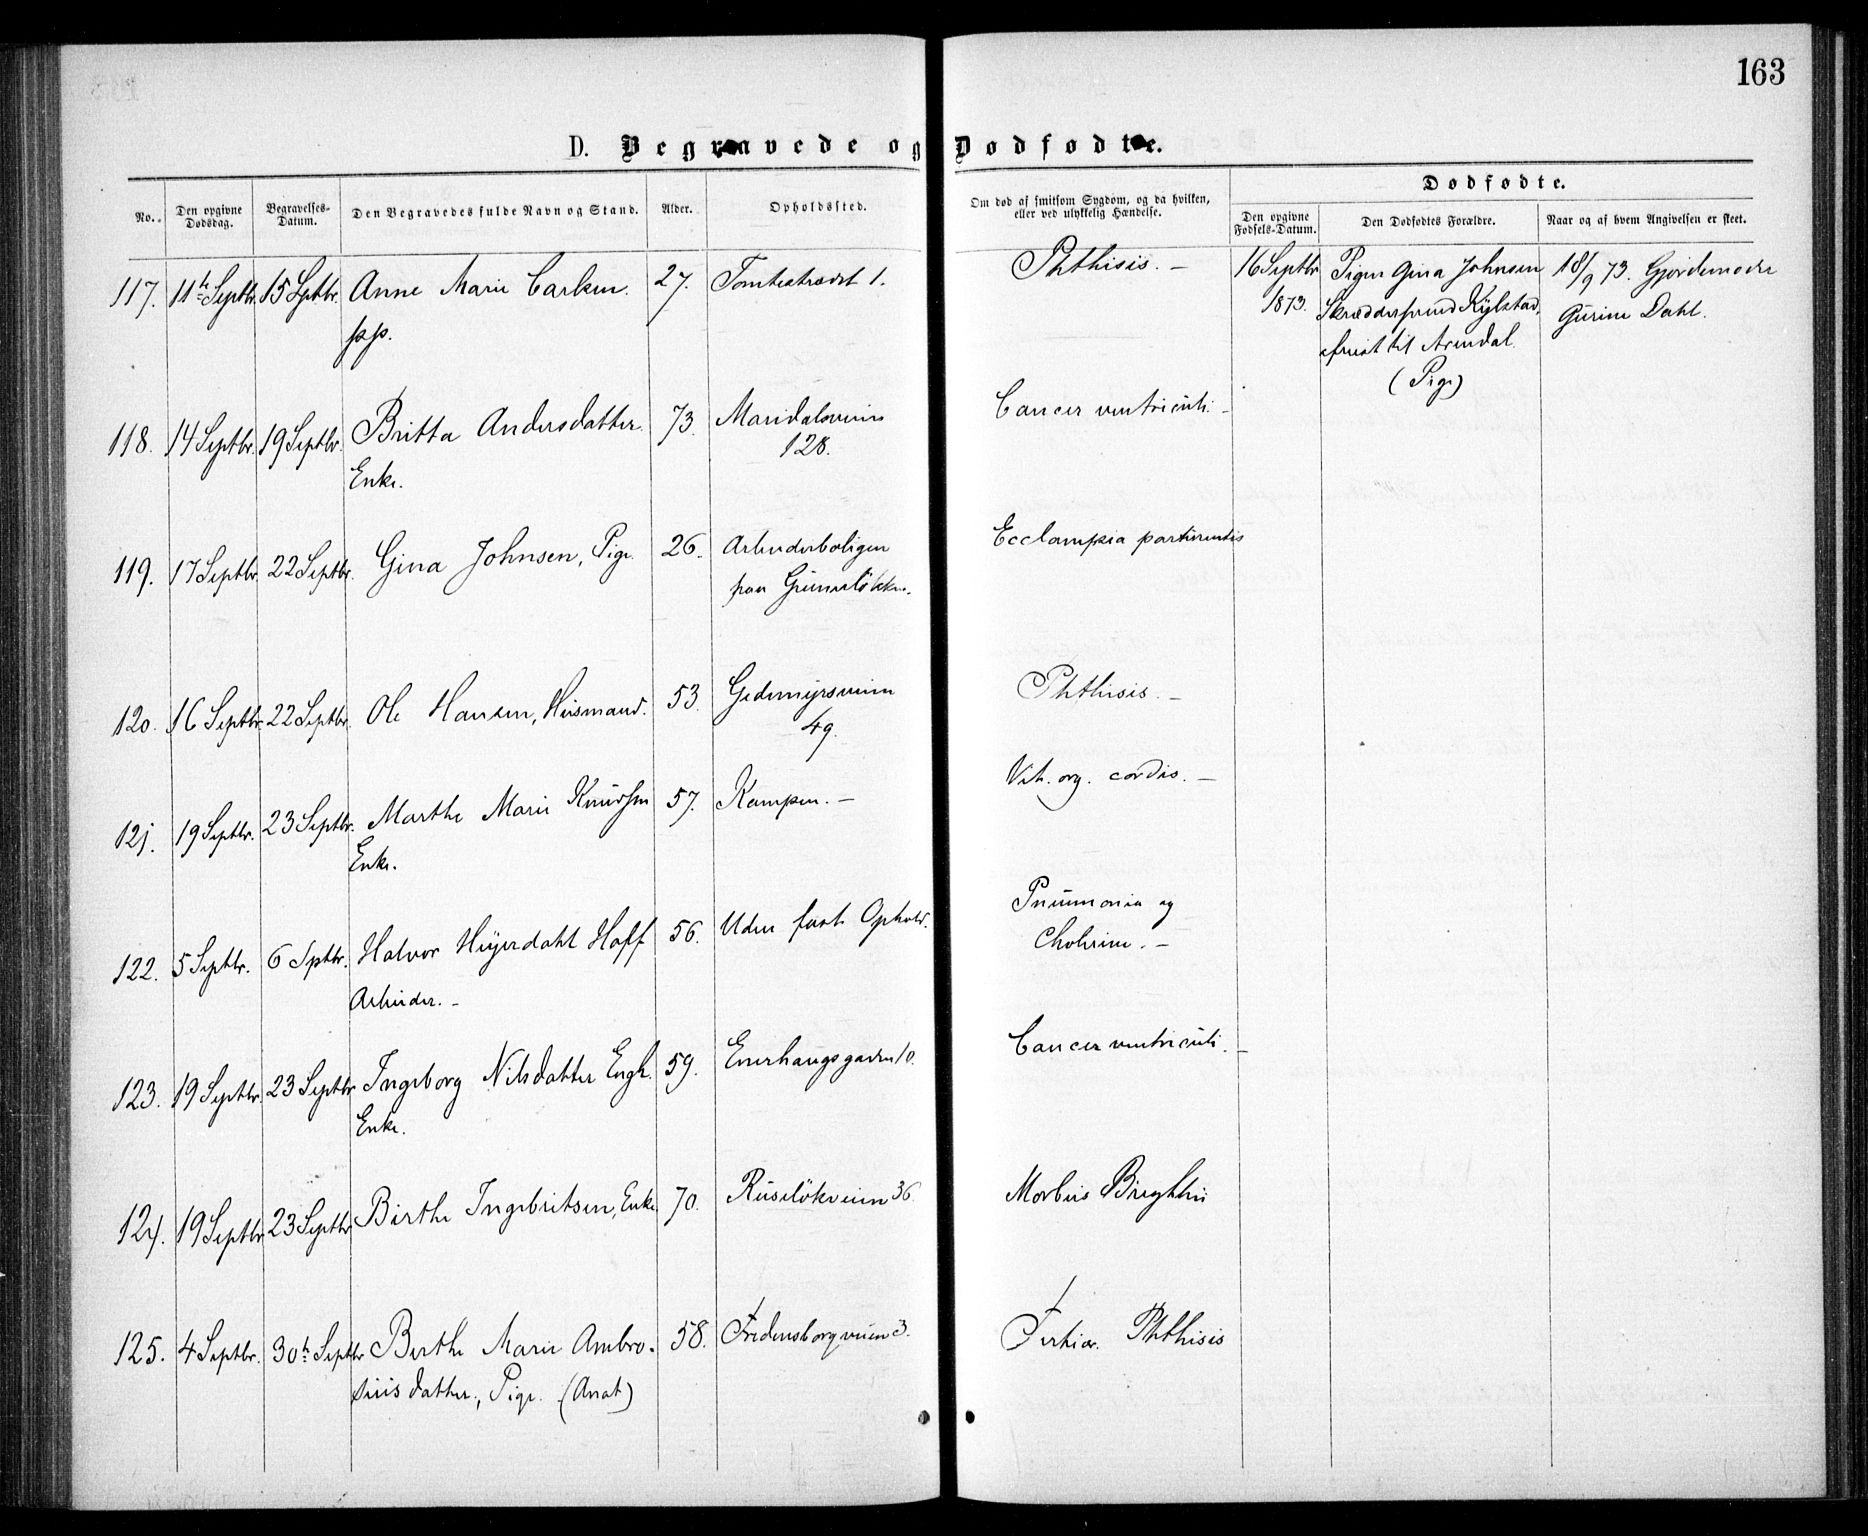 163
D. Begravede og Dødfødte.
No. Den opgivne Dødsdag. Begravelses-Datum. Den Begravedes fulde Navn og Stand. Alder. Opholdssted. Om død af smitsom Sygdom, og da hvilken, eller ved ulykkelig Hændelse.
Dødfødte.
Den opgivne Fødsels-Datum. Den Dødfødtes Forældre. Naar og af hvem Angivelsen er skeet.
117. 11te Septbr. 15 Septbr. Anne Marie Carlsen. 27. Tomtestrædet 1. Phthisis. — 16 Septbr Pigen Gina Johnsen 18/9 73. Gjordemoder
1873. Skræddersvend Kylstad, Gurine Dahl.
pp. afreist til Arendal.
(Pige)
118. 14 Septbr. 19 Septbr. Britta Andersdatter 73. Maridalsveien Cancer ventriculi. —
Enke. 128.
119. 17 Septbr. 22 Septbr. Gina Johnsen, Pige. 26. Arbeiderboligen Ecclampsia parturientis
paa Grünerløkken.
120. 16 Septbr. 22 Septbr. Ole Hansen, Husmand. 53. Gedemyrsveien Phthisis. —
49.
121. 19 Septbr. 23 Septbr. Marthe Marie Knudsen 57. Kampen. — Vit. org. cordis. —
Enke.
122. 5 Septbr. 6 Sptbr. Halvor Heyerdahl Hoff 56. Uden fast Ophold. Pneumonia og
Arbeider. — Cholerine. —
123. 19 Septbr. 23 Septbr Ingeborg Nilsdatter Engh. 59. Enerhaugsgaden 10. Cancer ventriculi. —
Enke.
124. 19 Septbr 23 Septbr Birthe Ingebritsen, Enke. 70. Ruseløkveien 36. Morbus Brightii
125. 4 Septbr. 30te Septbr Berthe Marie Ambro- 58. Fredensborgveien 3. Tertiær. Phthisis
siusdatter, Pige. (Anat)